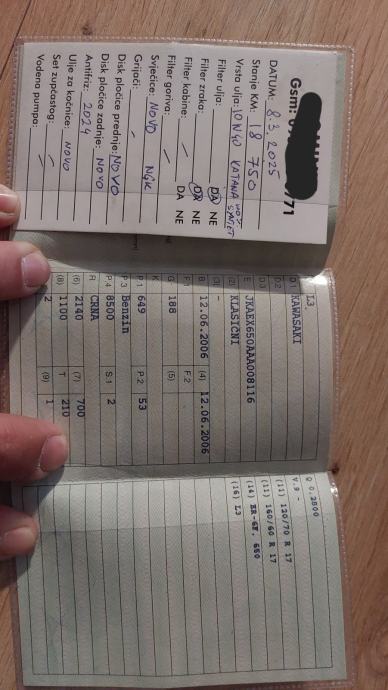 Gsm: 71
DATUM: 8.3.2025
Stanje KM: 18 750
Vrsta ulja: 10W40 KATANA
Filter ulja: DA NE
Filter zraka: DA NE
Filter kabine: DA NE
Filter goriva:
Svjećice: NOVO NGK
Grijači:
Disk pločice prednje: NOVO
Disk pločice zadnje: NOVO
Antifriz: 2024
Ulje za kočnice: NOVO
Set zupčastog:
Vodena pumpa:
L3
D.1 KAWASAKI
D.2
D.3
E JKAEX650AAA008116
(2) KLASIČNI
(3) -
B 12.06.2006 (4) 12.06.2006
F.1 F.2
G 188 (5)
K
P.1 649 P.2 53
P.3 Benzin
P.4 8500 S.1 2
R CRNA
(6) 2140 (7) 700
(8) 1100 T 210
2 (9) 1
Q 0.2800
V.9 -
(11) 120/70 R 17
(11) 160/60 R 17
(14) ER-6F, 650
(16) L3